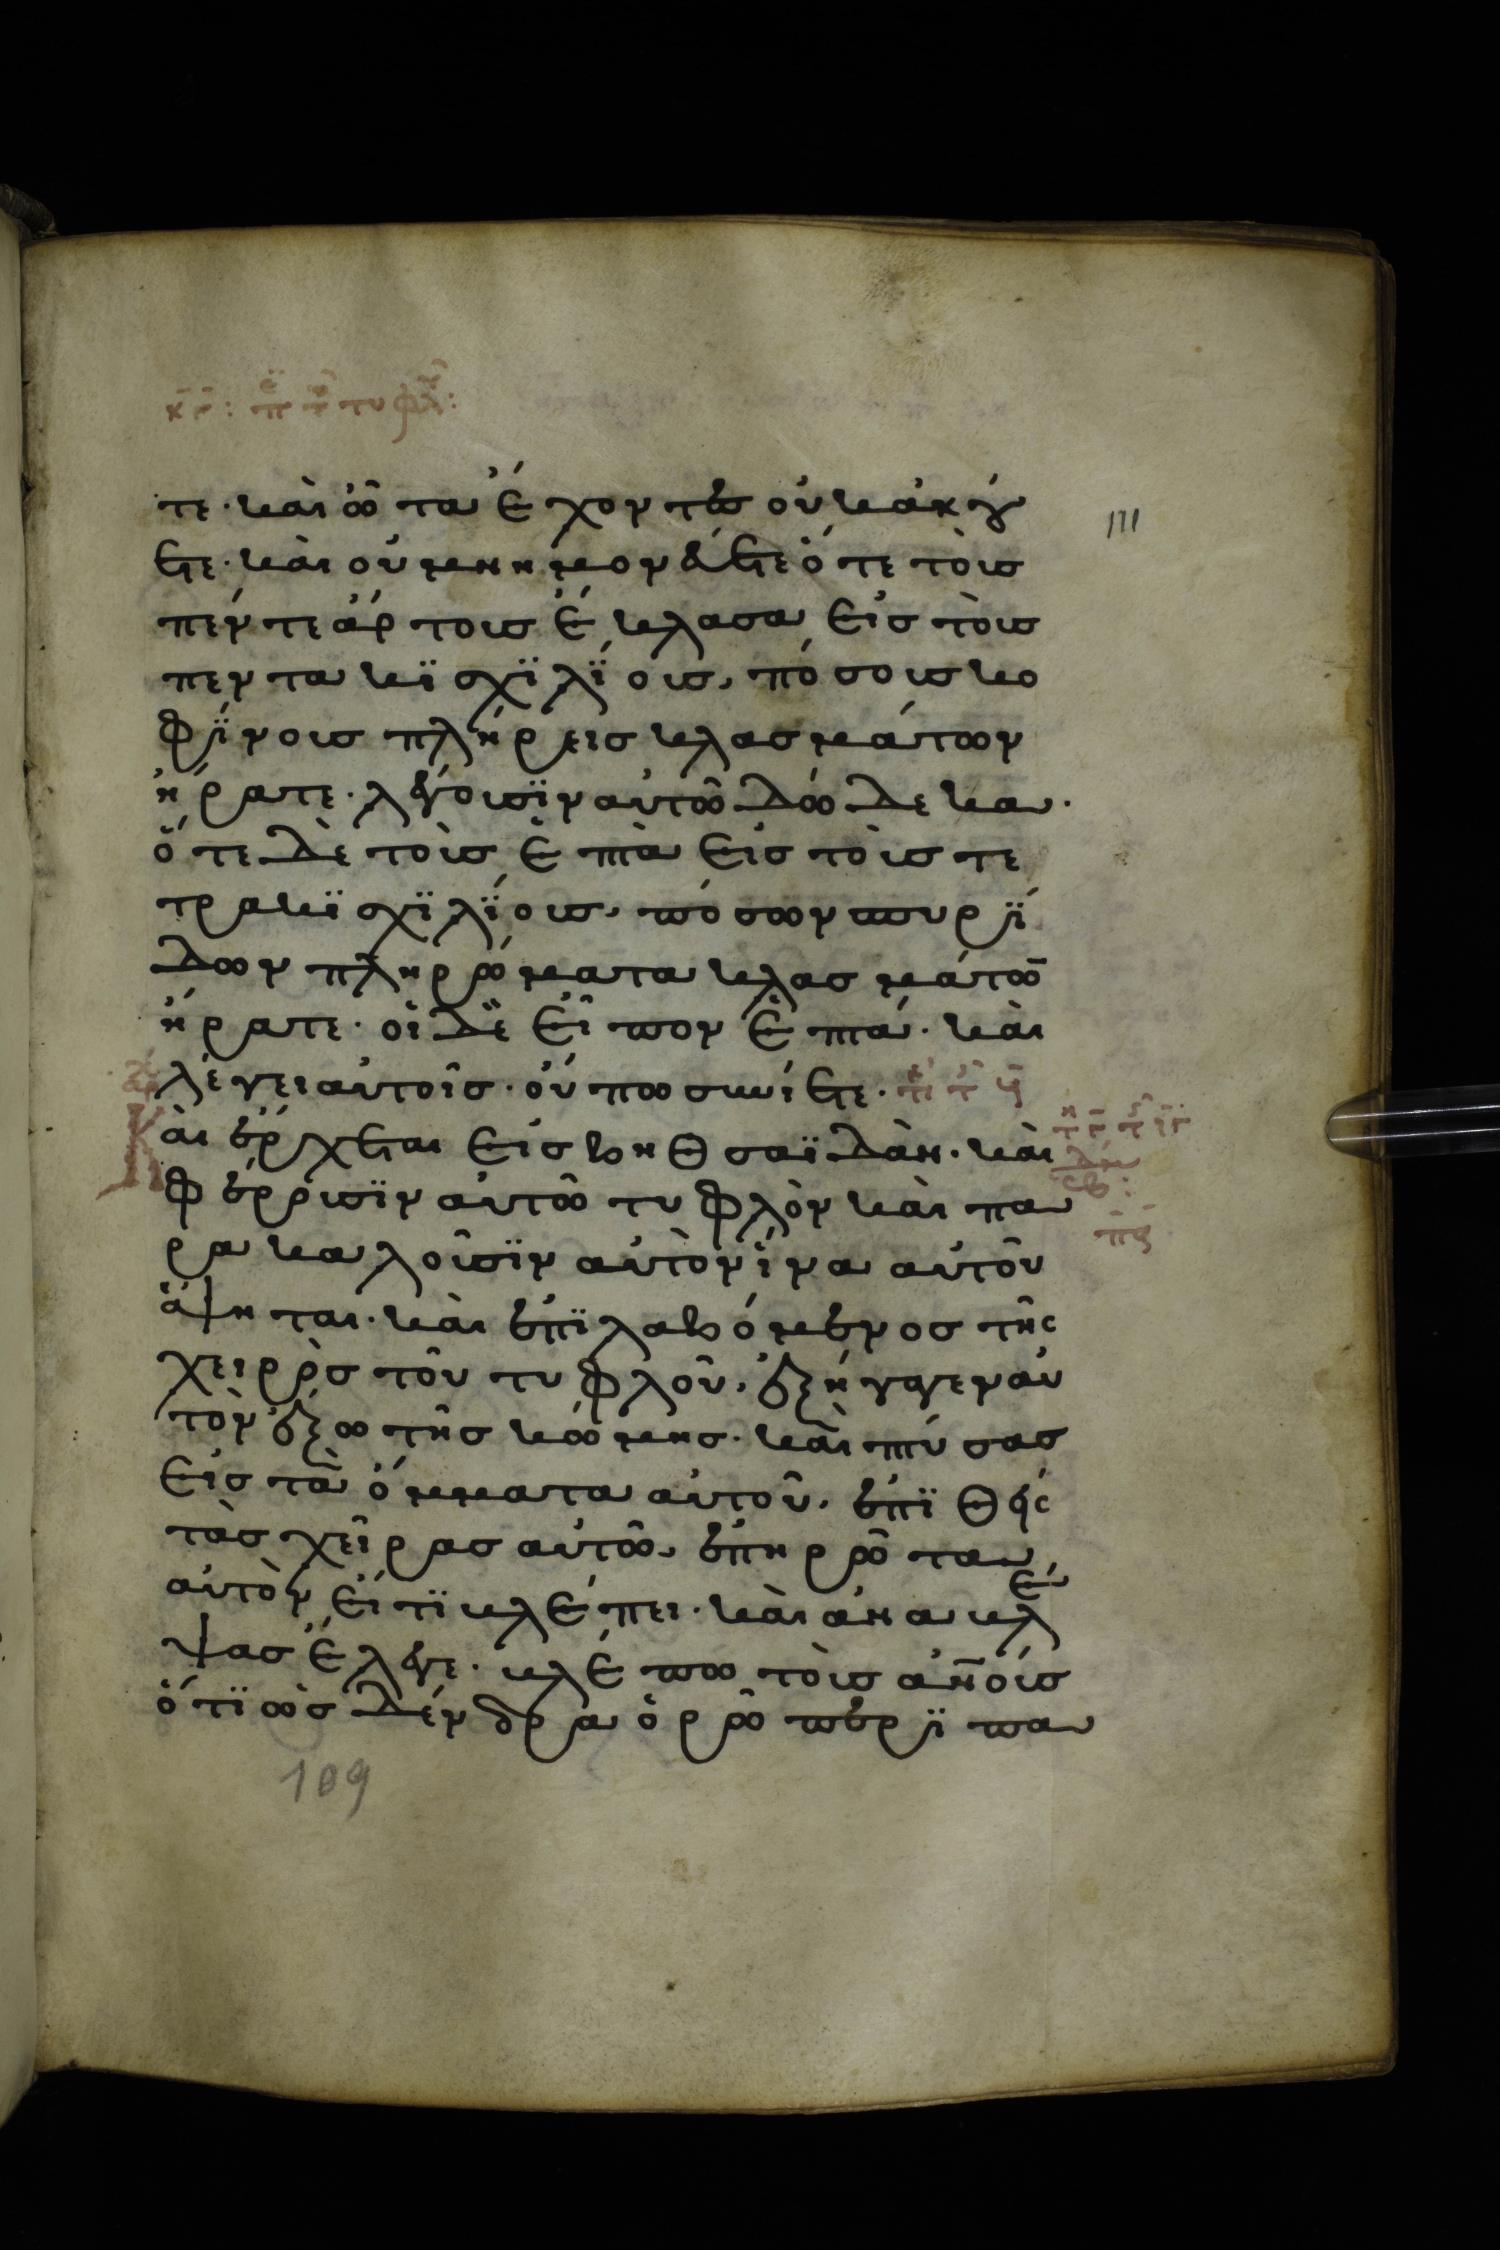 τε· καὶ ὦτα ἔχοντες οὐκ ἀκού
ετε· καὶ οὐ μνημονεύετε ὅτε τοὺς
πέντε ἄρτους ἔκλασα εἰς τοὺς
πεντακϊσχϊλΐους, πόσους κο
φΐνους πλήρεις κλασμάτων
ἤρατε· λέγουσϊν αὐτῶ δώδεκα·
ὅτε δὲ τοὺς ἑπτὰ εἰς τοὺς τε
τρακϊσχϊλΐους, πόσων σπυρΐ
δων πληρώματα κλασμάτω̄
ἤρατε· οἱ δὲ εἶπον ἑπτά· καὶ
λέγει αὐτοῖς· οὔπω συνίετε·
Καὶ ἔρχεται εἰς βηθσαϊδὰν· καὶ
φέρουσϊν αὐτῶ τυφλὸν καὶ πα
ρακαλοῦσϊν αὐτὸν ἵνα αὐτοῦ
ἅψηται· καὶ ἐπϊλαβόμενος τῆς
χειρὸς τοῦ τυφλοῦ, ἐξήγαγεν αὐ
τὸν ἔξω τῆς κώμης· καὶ πτύσας
εἰς τὰ ὄμματα αὐτοῦ, ἐπϊθεὶς
τὰς χεῖρας αὐτῶ, ἐπηρώτα
αὐτὸν εἴ τϊ βλέπει· καὶ ἀναβλέ
ψας ἔλεγε· βλέπω τοὺς ἀν̄ους
ὅτϊ ὡς δένδρα ὁρῶ περϊπα
111
109